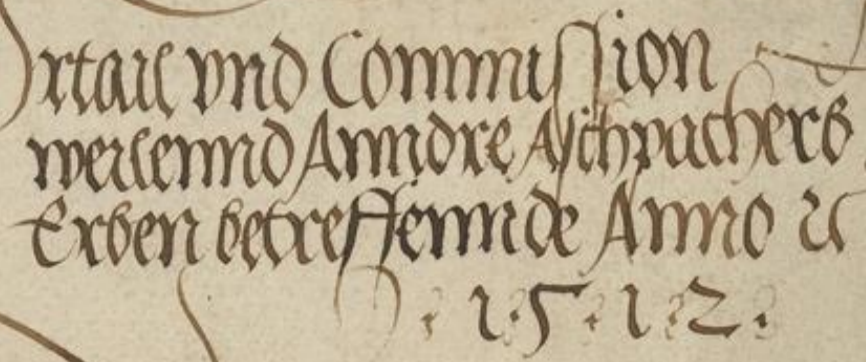 rtail vnd Commission
weilennd Anndre Aschpachers
Erben betreffennde Anno ꝛc
·1·5·1·2·